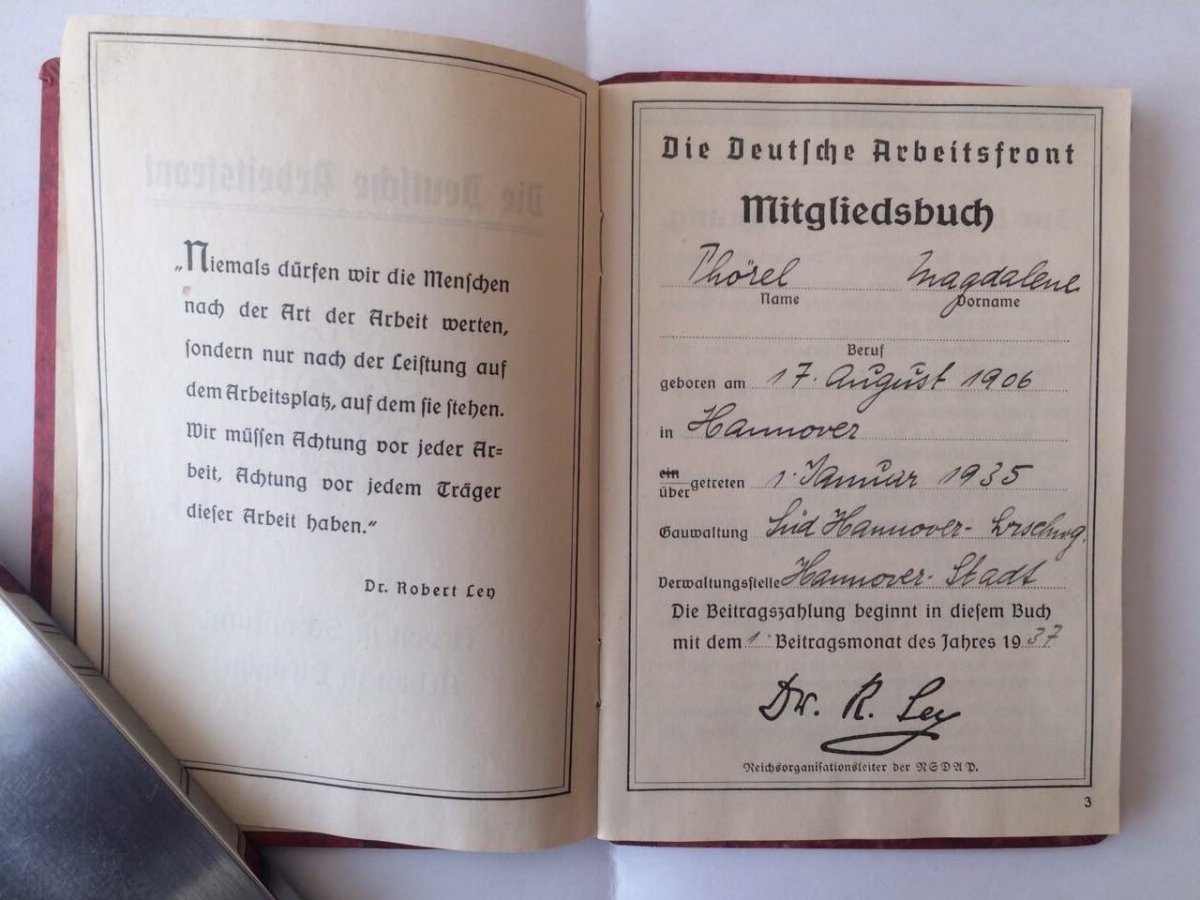 „Niemals dürfen wir die Menschen
nach der Art der Arbeit werten,
sondern nur nach der Leistung auf
dem Arbeitsplatz, auf dem sie stehen.
Wir müssen Achtung vor jeder Ar=
beit, Achtung vor jedem Träger
dieser Arbeit haben.“
Dr. Robert Ley
Die Deutsche Arbeitsfront
Mitgliedsbuch
Phörel Magdalene
Name Vorname
Beruf
geboren am 17. August 1906
in Hannover
ein
übergetreten 1. Januar 1935
Gauwaltung Süd Hannover-
Verwaltungsstelle Hannover-Stadt
Die Beitragszahlung beginnt in diesem Buch
mit dem 1. Beitragsmonat des Jahres 1937
Dr. R. Ley
Reichsorganisationsleiter der NSDAP.
3